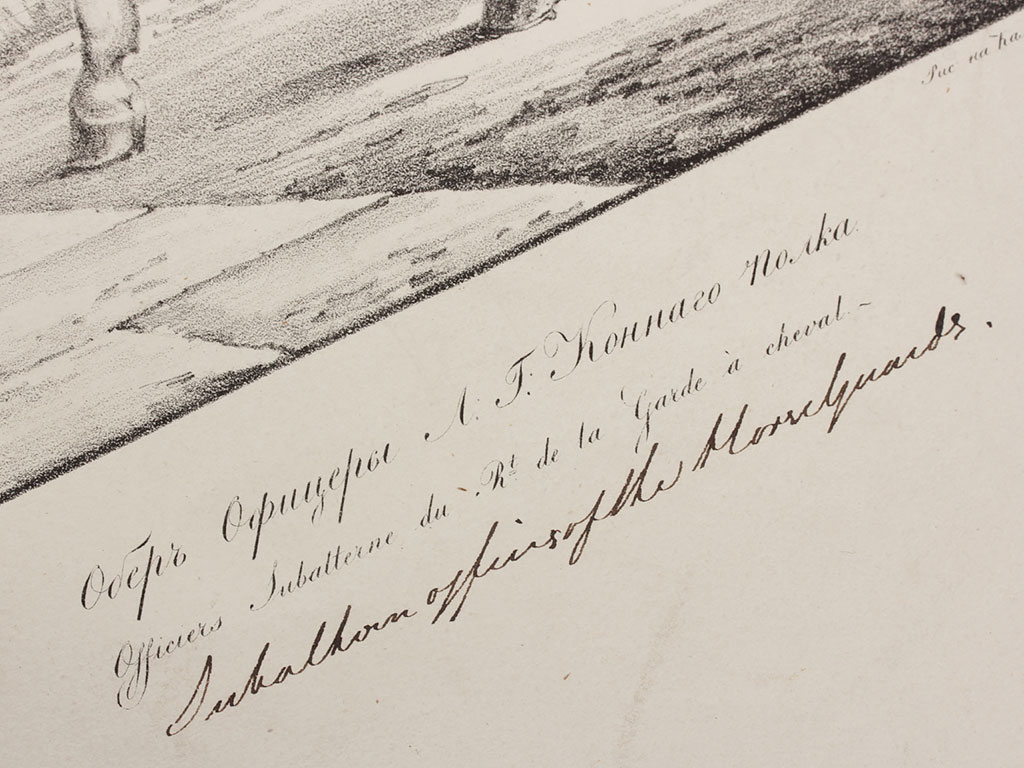 Рис. на ка
Оберъ Офицеры Л. Г. Коннаго полка.
Officiers Subalterne du Rt. de la Garde à cheval.~
Subaltern officers of the Horse Guards.